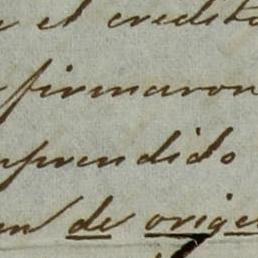 el credito
firmaron
prendido
en de orige